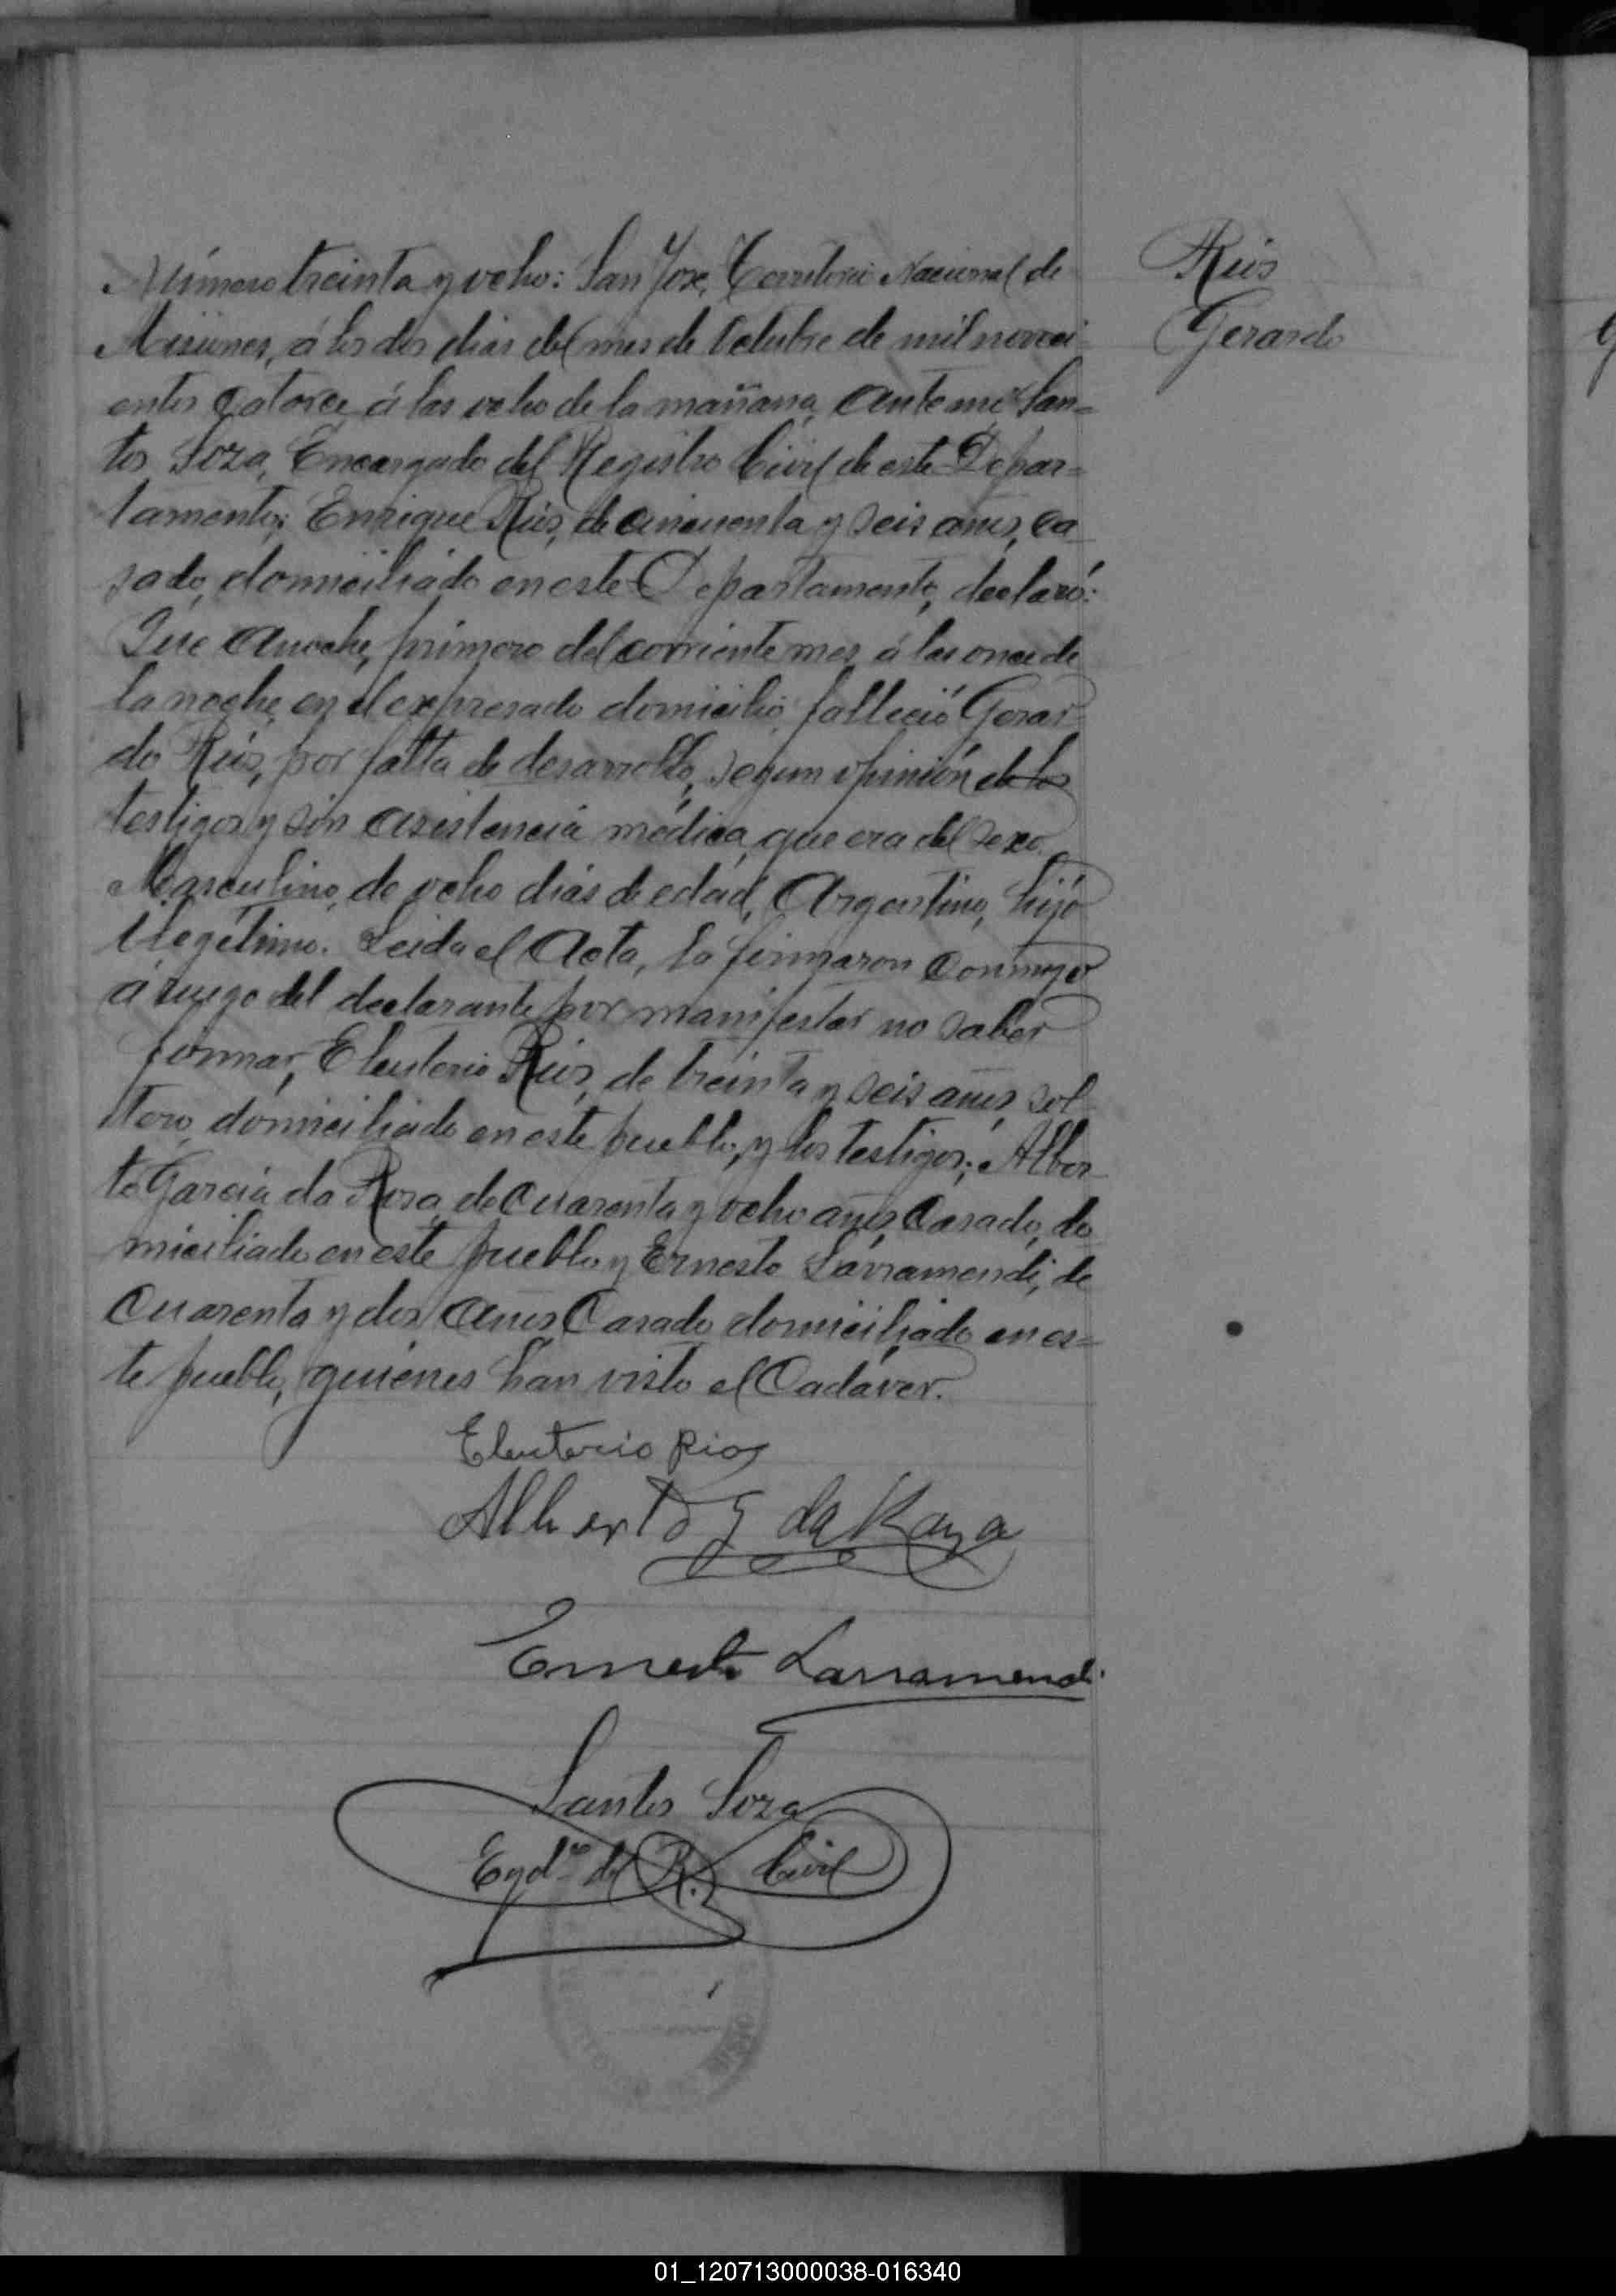 Rios
Gerardo
Número treinta y ocho: San José, Territorio Nacional de
Misiones, á los dos dias del mes de Octubre de mil noveci
entos Catorce, á las ocho de la mañana, Ante mi San=
tos Soza, Encargado del Registro Civil de este Depar=
tamento; Enrique Rios, de cincuenta y seis años, ca
sado, domiciliado en este Departamento, declaró:
Que Anoche, primero del corriente mes á las once de
la noche, en el expresado domicilio, falleció Gerar-
do Rios, por falta de desarrollo, segun opinión de los
testigos y sin asistencia médica, que era del sexo
Masculino, de ocho dias de edad, Argentino, hijo
Ilegítimo. Leida el Acta, la firmaron Conmigo
á ruego del declarante por manifestar no saber
firmar, Eleuterio Rios, de treinta y seis años sol
tero, domiciliado en este pueblo, y los testigos; Alber
to García da Rosa, de Cuarenta y ocho años, Casado, do
miciliado en este pueblo y Ernesto Larramendi, de
Cuarenta y dos Años, Casado, domiciliado en es=
te pueblo, quienes han visto el Cadáver.
Eleuterio Rios
Alberto G da Roza
Ernesto Larramendi
Santos Soza
Egdo del R. Civil
01_120713000038-016340